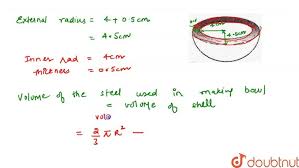 External radius = 4 + 0.5cm
= 4.5cm
Inner rad = 4cm
thickness = 0.5cm
4cm
4.5cm
Volume of the steel used in making bowl
= volume of shell
volu
= 2/3 π R² —
doubtnut